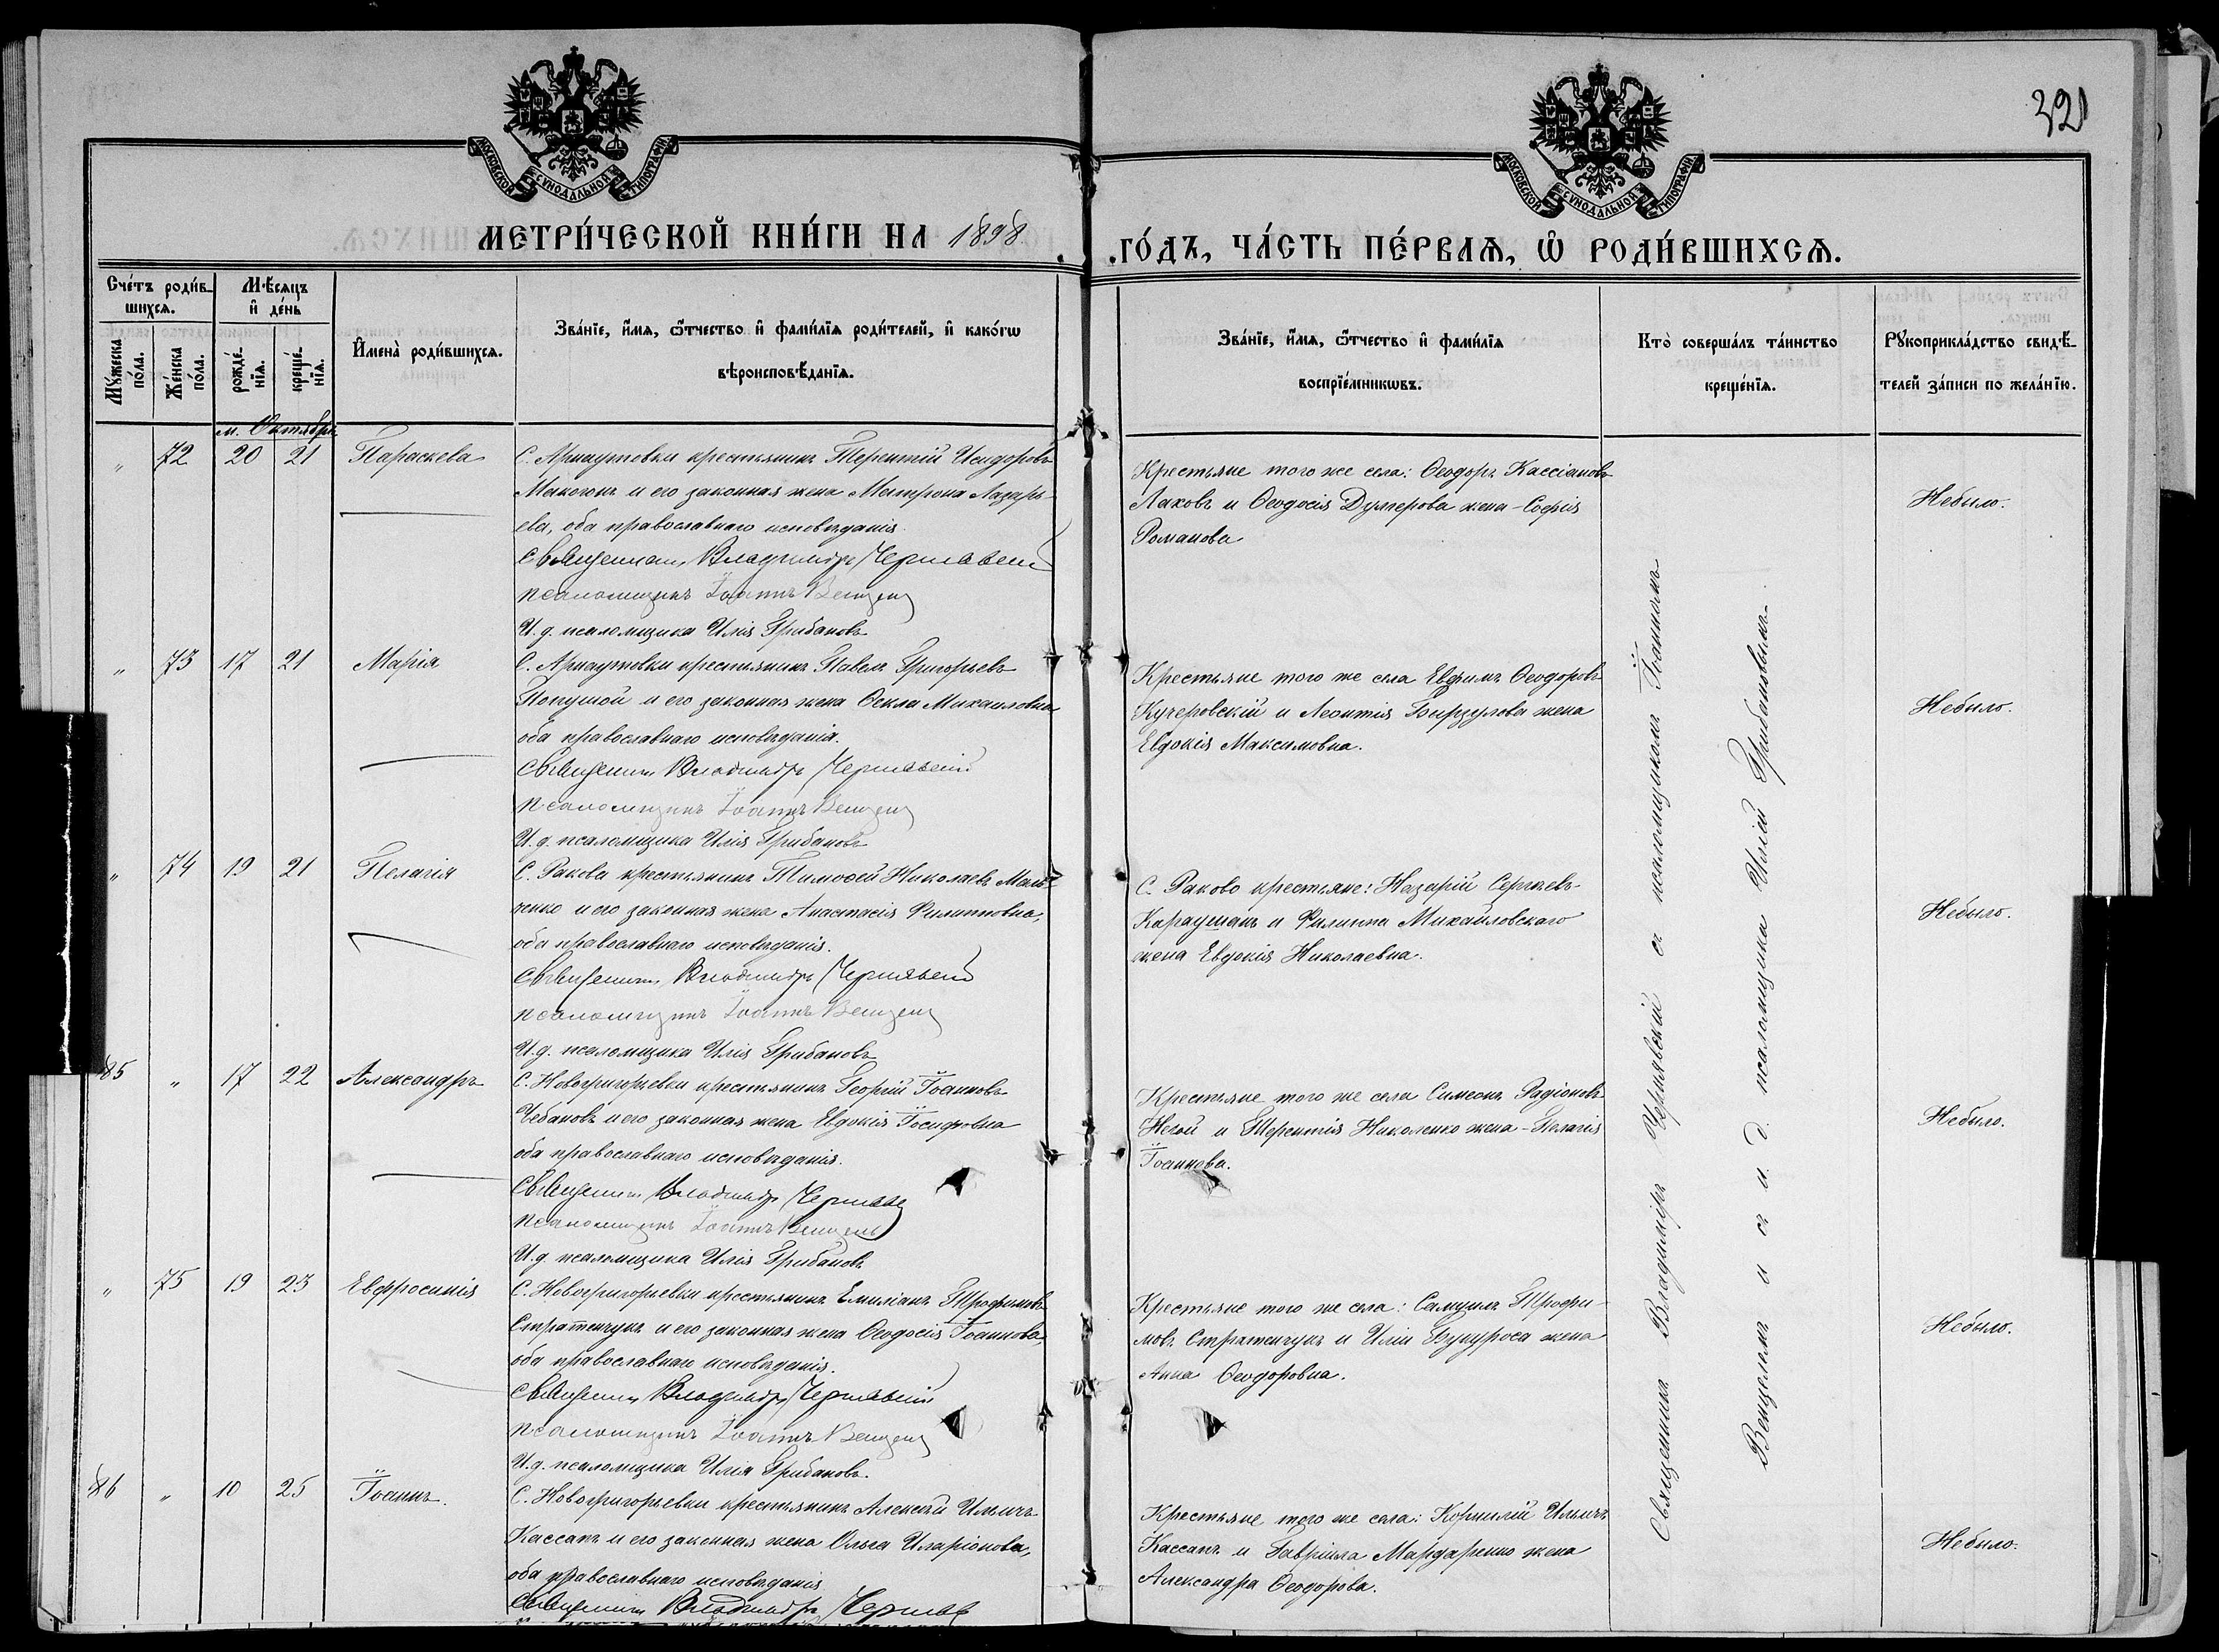 321
МОСКОВСКОЙ СѴНОДАЛЬНОЙ ТИПОГРАФІИ
МОСКОВСКОЙ СѴНОДАЛЬНОЙ ТИПОГРАФІИ
МЕТРИ́ЧЕСКОЙ КНИ́ГИ НА 1898
ГО́ДЪ, ЧА́СТЬ ПЕ́РВАѦ, Ѡ҆ РОДИ́ВШИХСѦ.
Сче́тъ роди́в-
шихсѧ.
Мꙋ́жеска по́ла.
Же́нска по́ла.
Мѣ́сѧцъ
и҆ де́нь
рожде́-
нїѧ.
креще́-
нїѧ.
И҆мена̀ роди́вшихсѧ.
Зва́нїе, и҆́мѧ, ѻ҆́тчество и҆ фами́лїѧ роди́телей, и҆ како́гѡ
вѣроисповѣ́данїѧ.
Зва́нїе, и҆́мѧ, ѻ҆́тчество и҆ фами́лїѧ
воспрїе́мникѡвъ.
Кто̀ соверша́лъ та́инство
креще́нїѧ.
Рꙋкоприкла́дство свидѣ́-
телей за́писи по жела́нїю.
м. Октябрь
" 72 20 21 Параскева
С. Арнаутовки крестьянинъ Терентій Исидоровъ
Макогонъ и его законная жена Матрона Лазарь-
ева, оба православнаго исповѣданія.
Священникъ Владиміръ Чернявскій
Псаломщикъ Іоаннъ Венцель
И. д. псаломщика Илія Грибановъ
Крестьяне того же села: Ѳеодоръ Кассіановъ
Лаховъ и Ѳеодосія Думерова жена - Софія
Романова
Небыло.
" 73 17 21 Марія
С. Арнаутовки крестьянинъ Павелъ Григорьевъ
Попушой и его законная жена Ѳекла Михаиловна
оба православнаго исповѣданія.
Священникъ Владиміръ Чернявскій
Псаломщикъ Іоаннъ Венцель
И. д. псаломщика Илія Грибановъ
Крестьяне того же села Евфимъ Ѳеодоровъ
Кучеровскій и Леонтія Бырзулова жена
Евдокія Максимовна.
Небыло.
" 74 19 21 Пелагія
С. Ракова крестьянинъ Тимоѳей Николаевъ Маль-
ченко и его законная жена Анастасія Филипповна,
оба православнаго исповѣданія.
Священникъ Владиміръ Чернявскій
Псаломщикъ Іоаннъ Венцель
И. д. псаломщика Илія Грибановъ
С. Раково крестьяне: Назарій Сергѣевъ
Караушанъ и Филиппа Михайловскаго
жена Евдокія Николаевна.
Небыло.
85 " 17 22 Александръ
С. Новогригорьевки крестьянинъ Георгій Іоанновъ
Чебановъ и его законная жена Евдокія Іосифовна
оба православнаго исповѣданія.
Священникъ Владиміръ Чернявскій
Псаломщикъ Іоаннъ Венцель
И. д. псаломщика Илія Грибановъ
Крестьяне того же села Симеонъ Радіоновъ
Негой и Терентія Николенко жена - Пелагія
Іоаннова.
Небыло.
" 75 19 23 Евфросинія
С. Новогригорьевки крестьянинъ Емиліанъ Трофимовъ
Стратенчукъ и его законная жена Ѳеодосія Іоаннова,
оба православнаго исповѣданія.
Священникъ Владиміръ Чернявскій
Псаломщикъ Іоаннъ Венцель
И. д. псаломщика Илія Грибановъ.
Крестьяне того же села: Самуилъ Трофи-
мовъ Стратенчукъ и Иліи Букуроса жена
Анна Ѳеодоровна.
Небыло.
86 " 10 25 Іоаннъ.
С. Новогригорьевки крестьянинъ Алексѣй Ильичъ
Кассапъ и его законная жена Ольга Иларіонова,
оба православнаго исповѣданія
Священникъ Владиміръ Черняв
Крестьяне того же села: Корнилій Ильичъ
Кассапъ и Гавріила Мардаренко жена
Александра Ѳеодорова.
Небыло.
Священникъ Владиміръ Чернявскій съ псаломщикомъ Іоанномъ
Венцелемъ и съ и. д. псаломщика Иліей Грибановымъ.